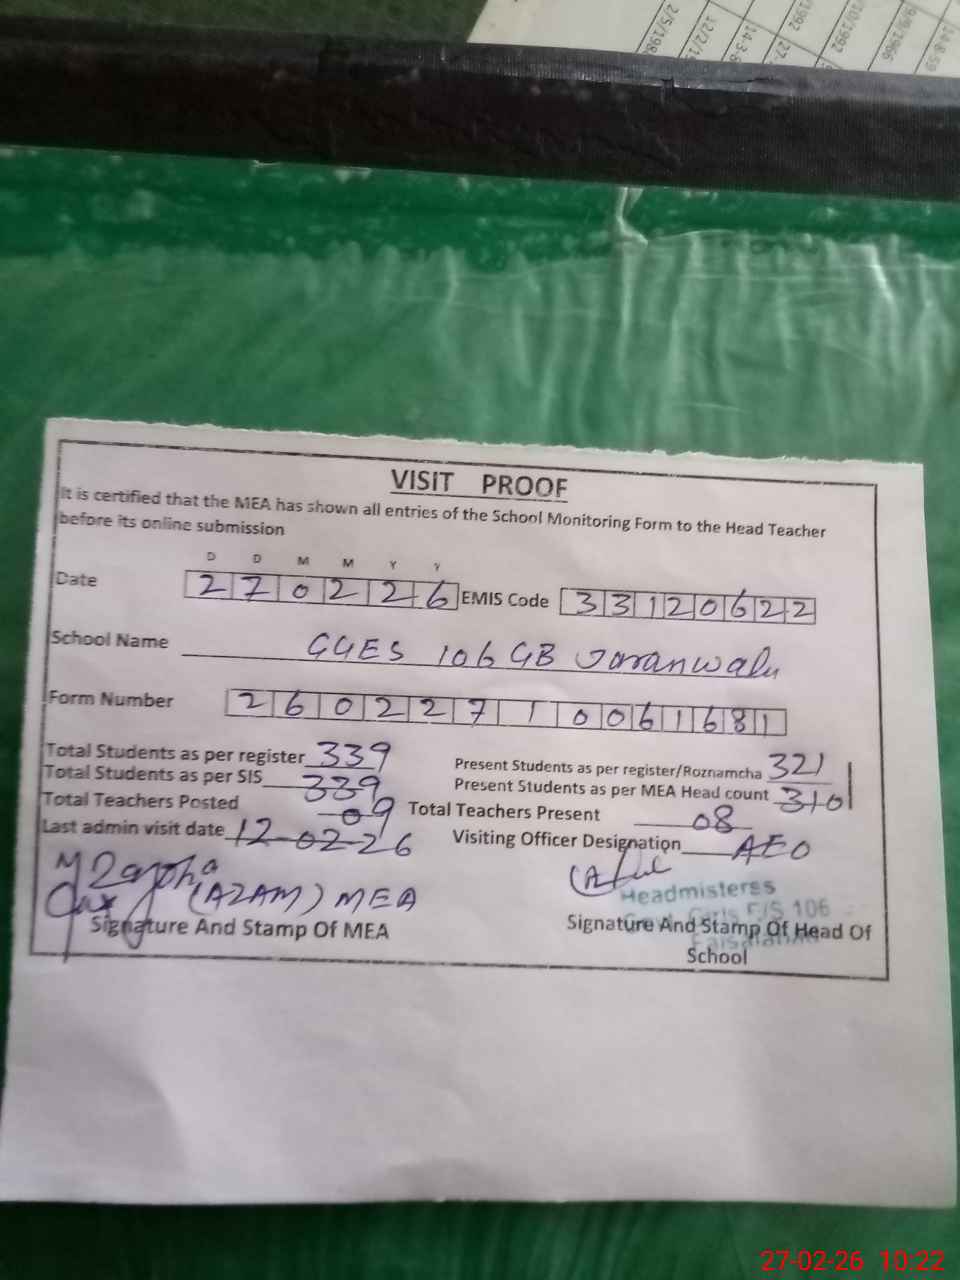 2/5/198
12/2/1
14-3-8
27-
1992
10/1992
9/9/1966
14-8-59
VISIT PROOF
It is certified that the MEA has shown all entries of the School Monitoring Form to the Head Teacher
before its online submission
D D M M Y Y
Date 270226 EMIS Code 33120622
School Name GGES 106 GB Jaranwala
Form Number 26022710061681
Total Students as per register 339 Present Students as per register/Roznamcha 321
Total Students as per SIS 339 Present Students as per MEA Head count 310
Total Teachers Posted 09 Total Teachers Present 08
Last admin visit date 12-02-26 Visiting Officer Designation AEO
(AZAM) MEA
Headmisteres
Girls E/S 106
Faisalabad
Signature And Stamp Of MEA Signature And Stamp Of Head Of
School
27-02-26 10:22